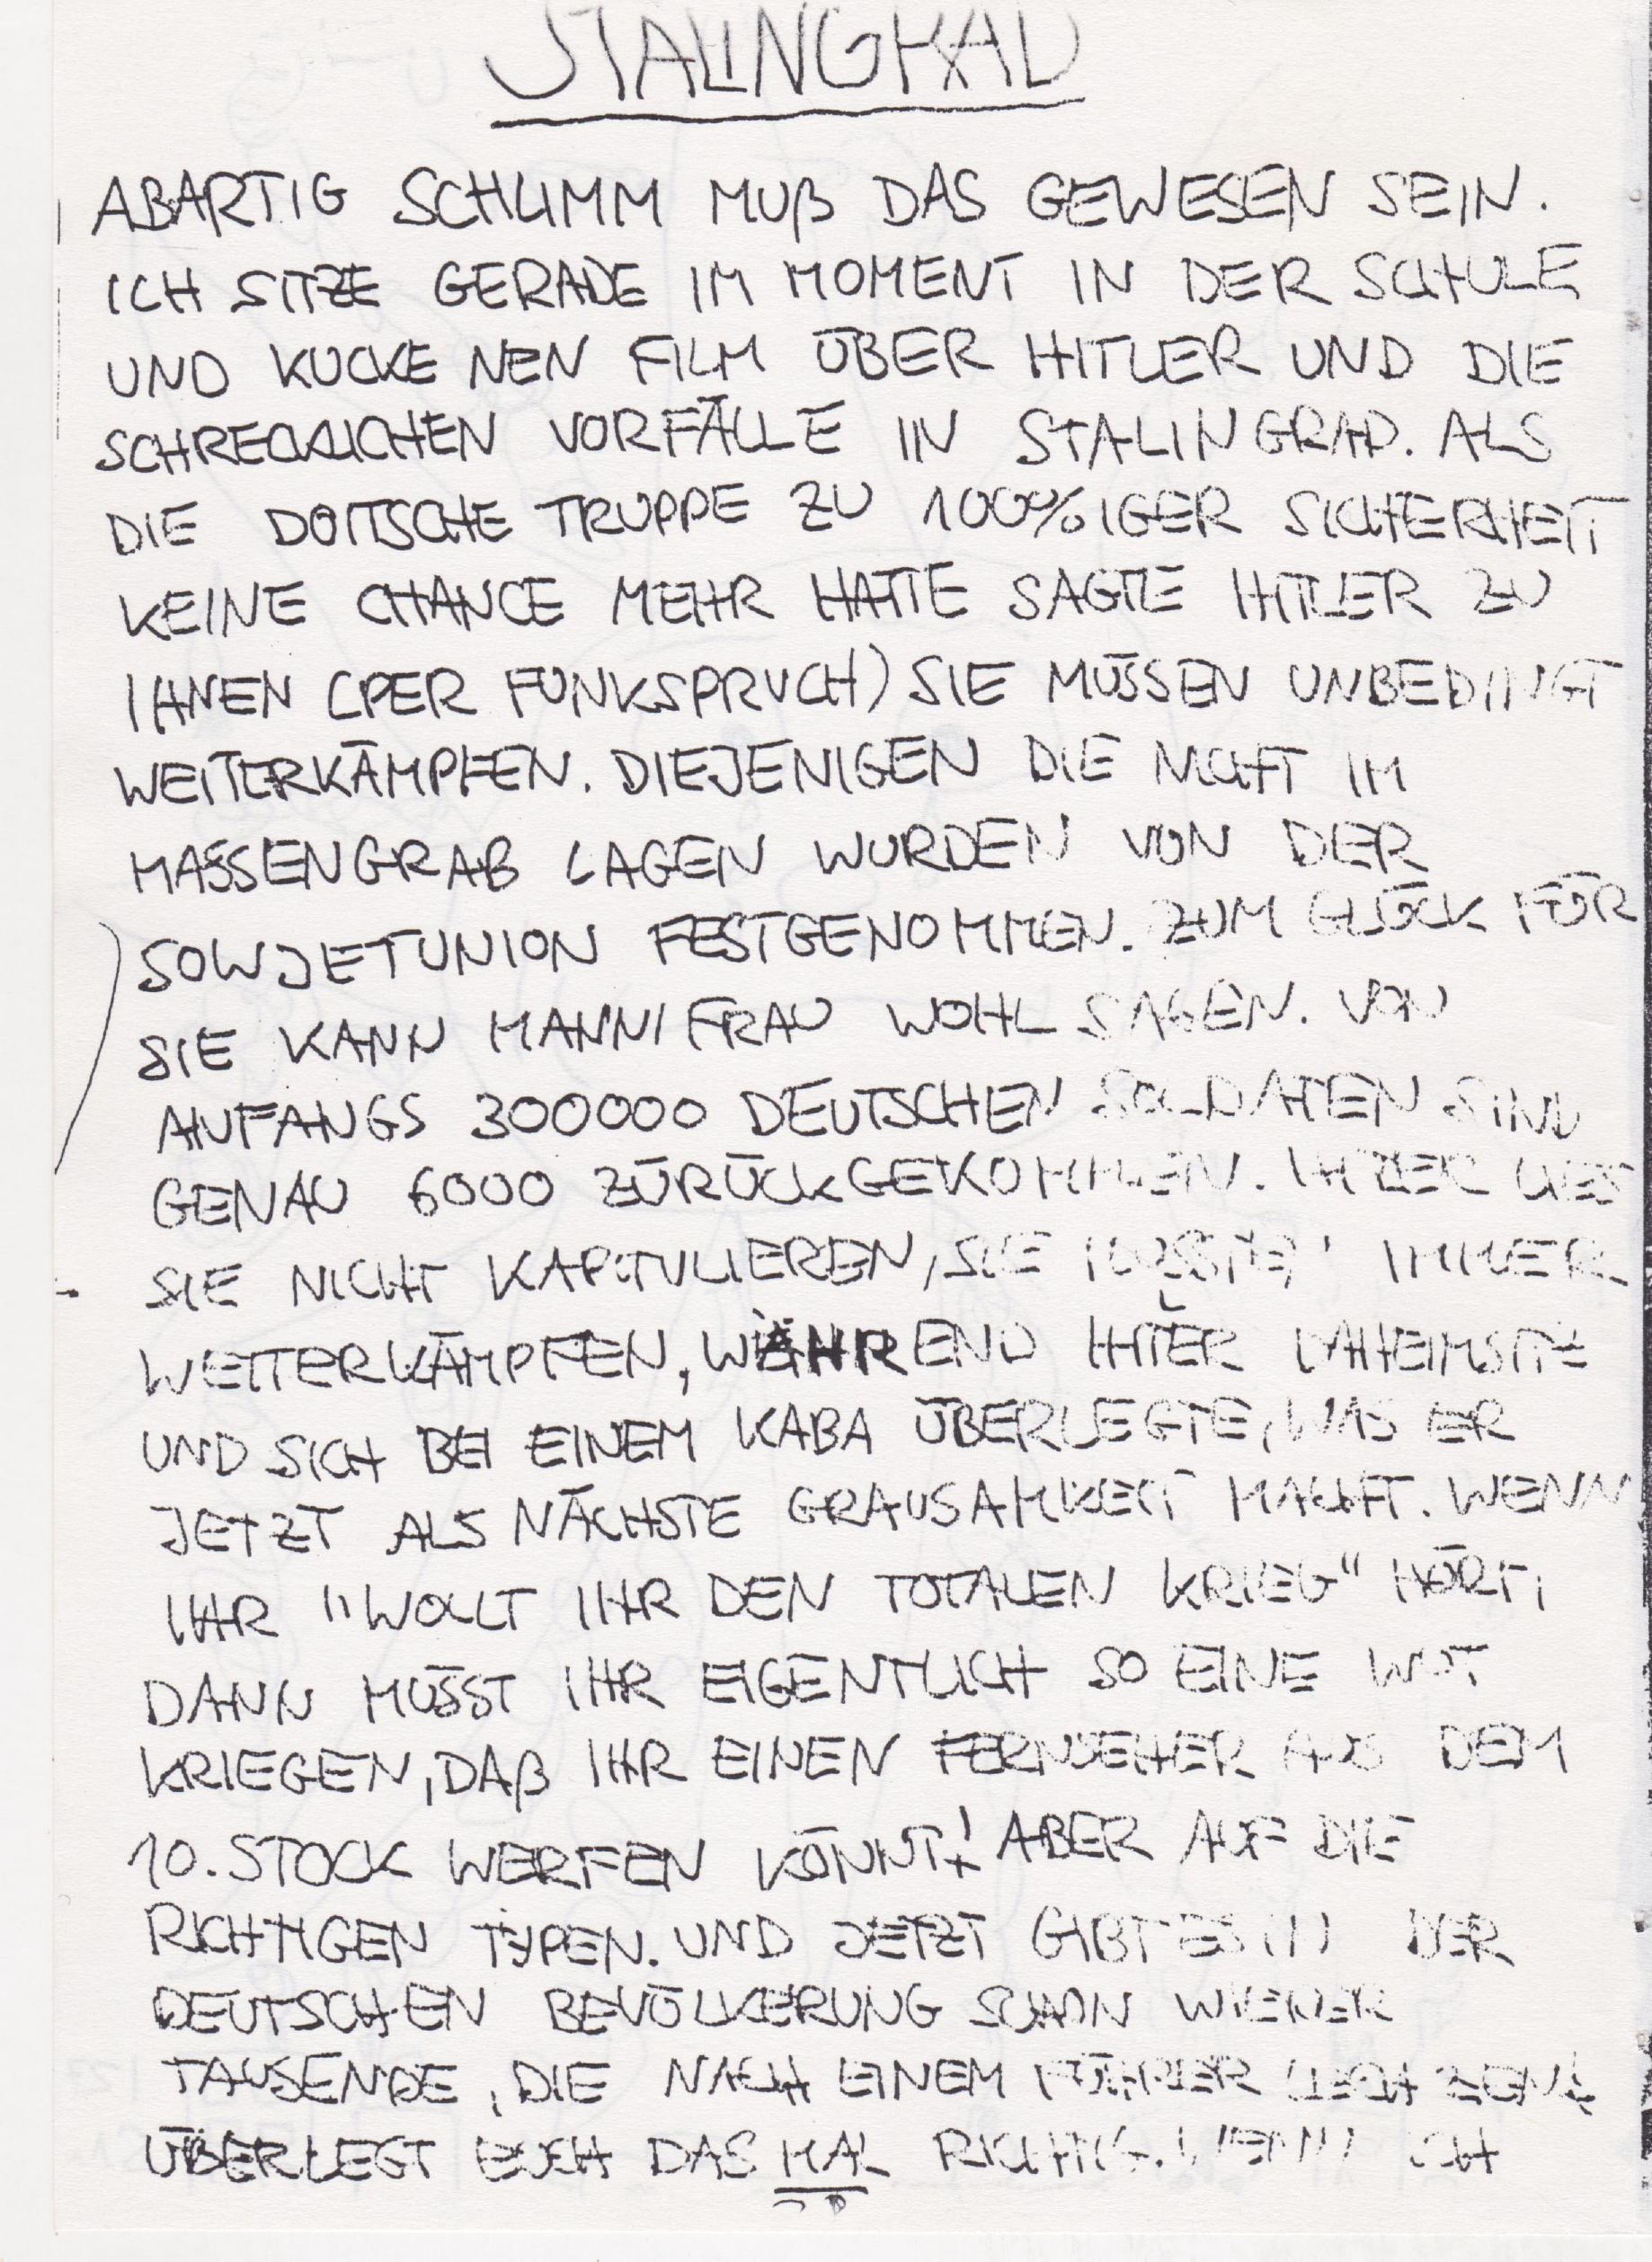 STALINGRAD
ABARTIG SCHLIMM MUß DAS GEWESEN SEIN.
ICH SITZE GERADE IM MOMENT IN DER SCHULE
UND KUCKE NEN FILM ÜBER HITLER UND DIE
SCHRECKLICHEN VORFÄLLE IN STALINGRAD. ALS
DIE DOITSCHE TRUPPE ZU 100%IGER SICHERHEIT
KEINE CHANCE MEHR HATTE SAGTE HITLER ZU
IHNEN (PER FUNKSPRUCH) SIE MÜSSEN UNBEDINGT
WEITERKÄMPFEN. DIEJENIGEN DIE NICHT IM
MASSENGRAB LAGEN WURDEN VON DER
SOWJETUNION FESTGENOMMEN. ZUM GLÜCK FÜR
SIE KANN MANN/FRAU WOHL SAGEN. VON
ANFANGS 300000 DEUTSCHEN SOLDATEN SIND
GENAU 6000 ZÜRÜCKGEKOMMEN. HITLER LIES
SIE NICHT KAPITULIEREN, SIE IMMER
WEITERKÄMPFEN, WÄHREND HITLER DAHEIMSITZ
UND SICH BEI EINEM KABA ÜBERLEGTE, WAS ER
JETZT ALS NÄCHSTE GRAUSAMKEIT MACHT. WENN
IHR "WOLLT IHR DEN TOTALEN KRIEG" HÖRT,
DANN MÜSST IHR EIGENTLICH SO EINE WUT
KRIEGEN, DAß IHR EINEN FERNSEHER AUS DEM
10. STOCK WERFEN KÖNNT! ABER AUF DIE
RICHTIGEN TYPEN. UND JETZT GIBT ES IN DER
DEUTSCHEN BEVÖLKERUNG SCHON WIEDER
TAUSENDE, DIE NACH EINEM FÜHRER LECHZEN!
ÜBERLEGT EUCH DAS MAL RICHTIG. WENN ICH